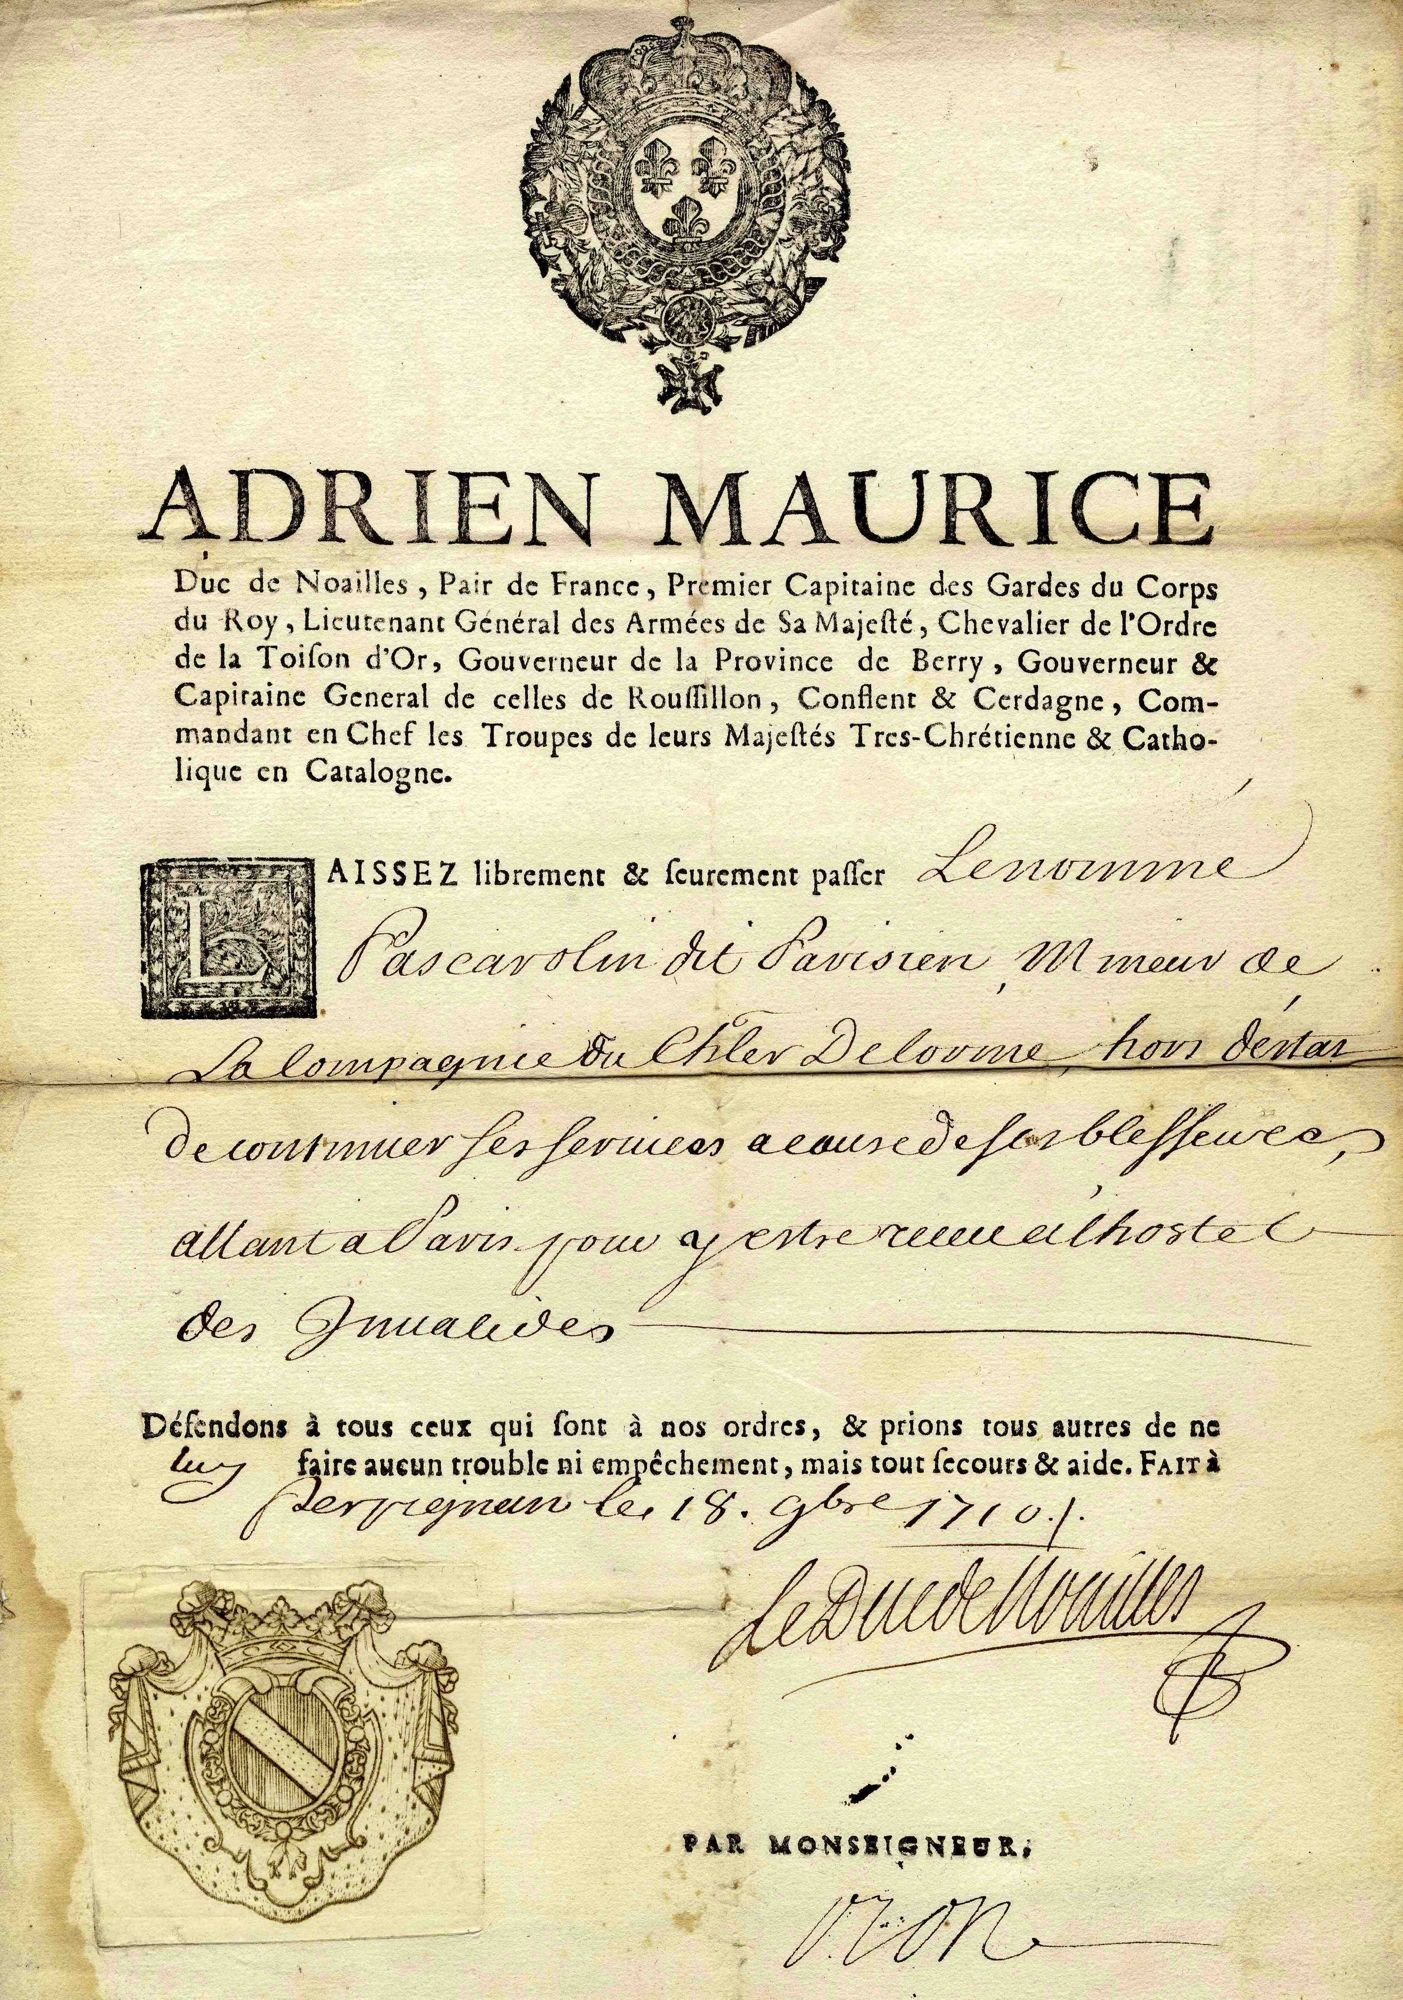 ADRIEN MAURICE
Duc de Noailles, Pair de France, Premier Capitaine des Gardes du Corps
du Roy, Lieutenant Général des Armées de Sa Majeſté, Chevalier de l'Ordre
de la Toiſon d'Or, Gouverneur de la Province de Berry, Gouverneur &
Capitaine General de celles de Rouſſillon, Conflent & Cerdagne, Com-
mandant en Chef les Troupes de leurs Majeſtés Tres-Chrétienne & Catho-
lique en Catalogne.
LAISSEZ librement & ſeurement paſſer Le nommé
Pascarolin dit Parisien, Mineur de
La Compagnie du Chler Delorme, hors destat
de continuer ses services a cause de ses blesseures,
allant a Paris pour y estre receu a lhostel
des Inualides
Défendons à tous ceux qui ſont à nos ordres, & prions tous autres de ne
luy faire aucun trouble ni empêchement, mais tout ſecours & aide. FAIT à
Perpignan le 18. 9bre 1710./.
Le Duc de Noailles
PAR MONSEIGNEUR,